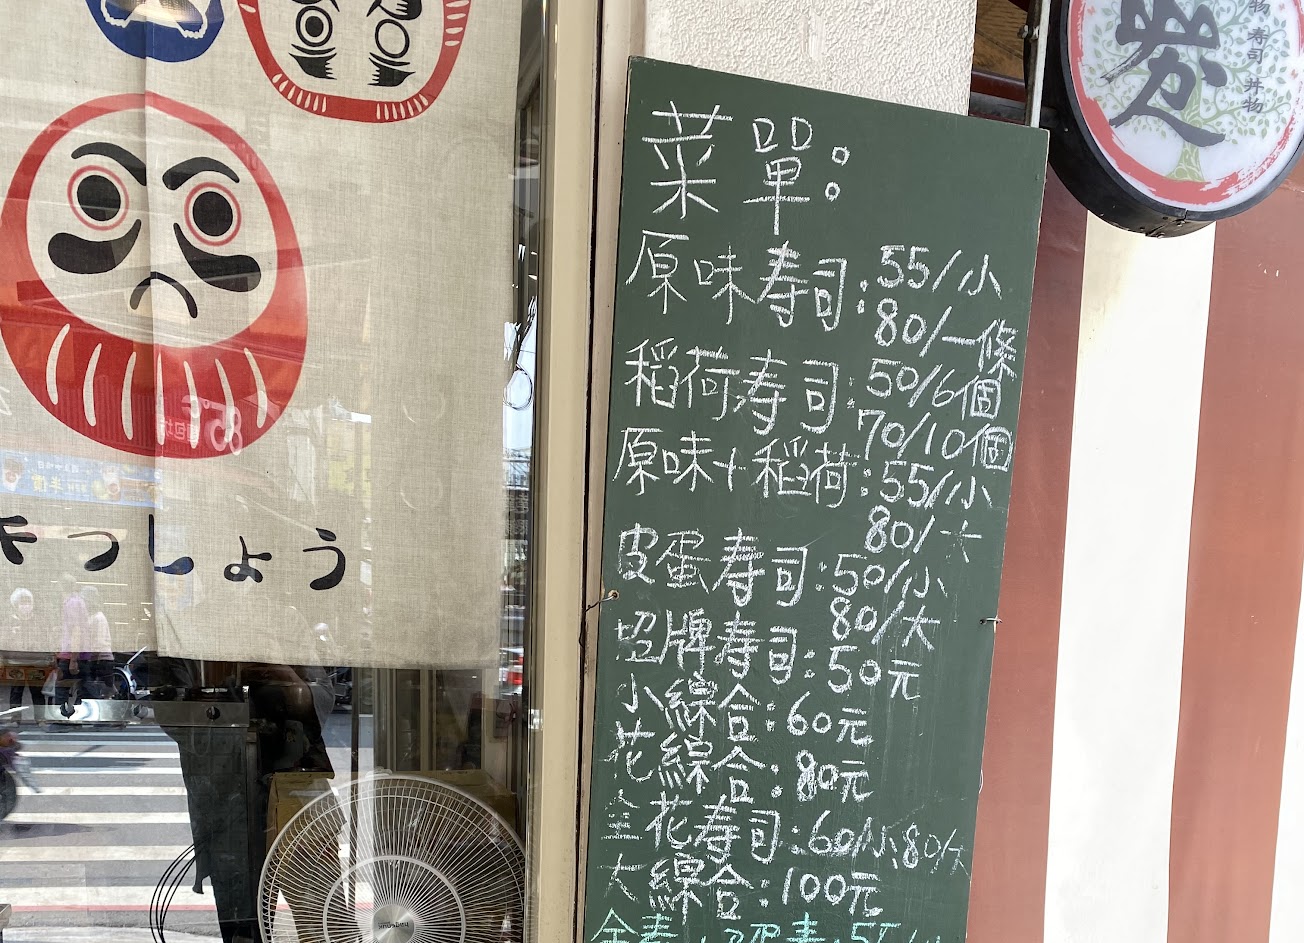 菜單:
原味寿司:55/小
80/一條
稻荷寿司:50/6個
70/10個
原味+稻荷:55/小
80/大
皮蛋寿司:50/小
80/大
招牌寿司:50元
小綜合:60元
花綜合:80元
全花寿司:60/小80/大
大綜合:100元
寿司 丼物
きっしょう
85°C